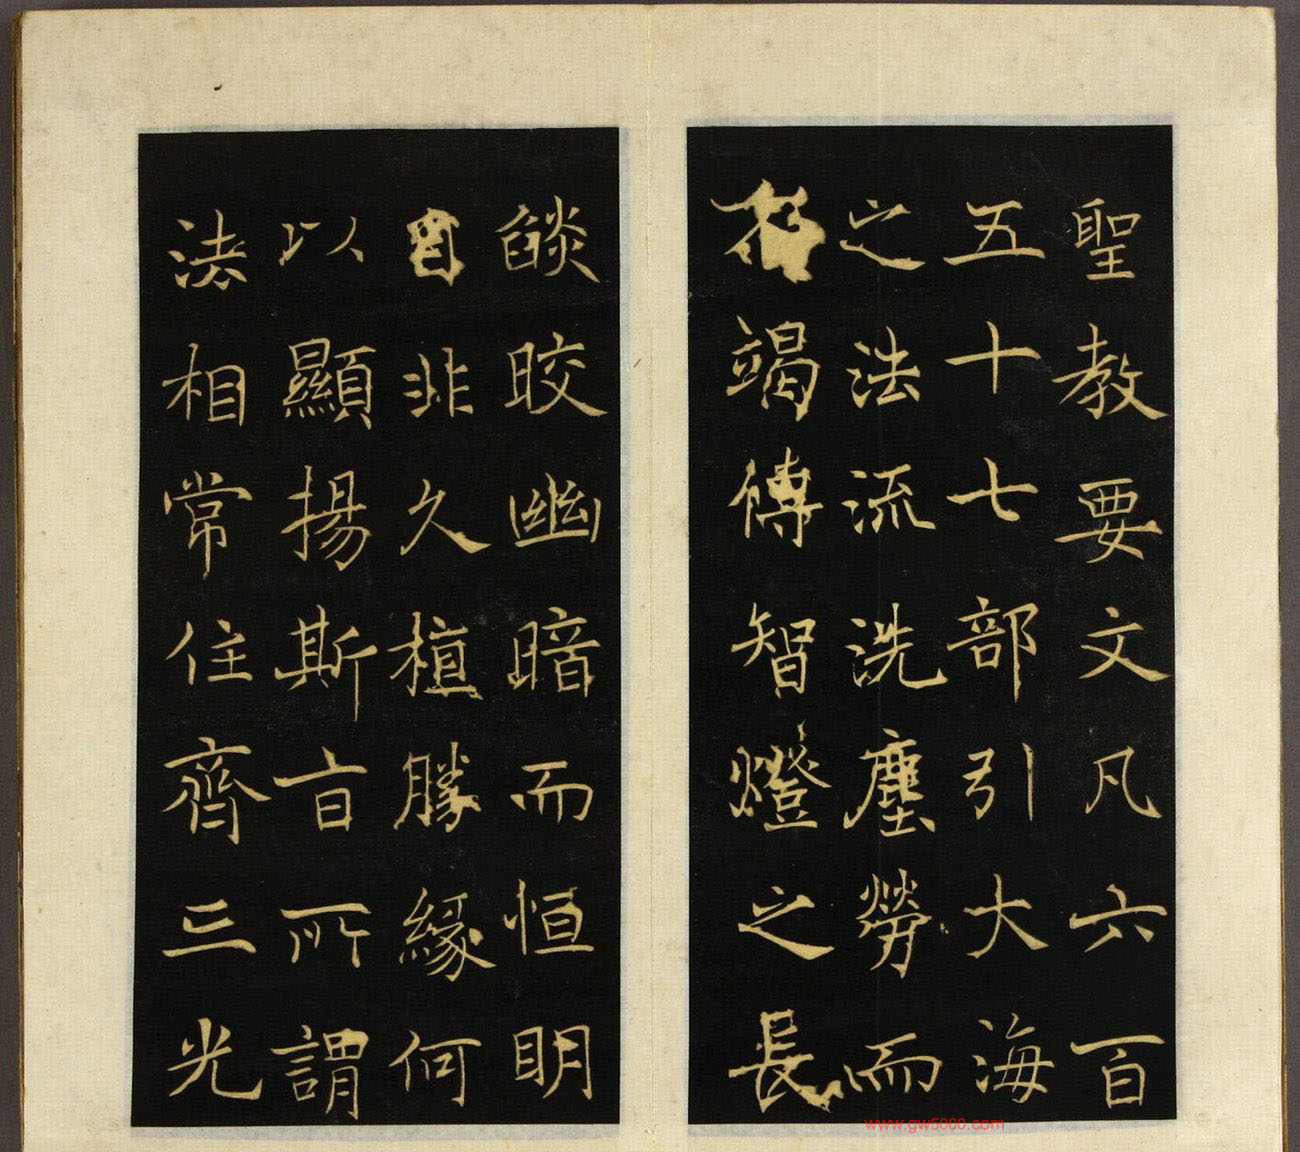 聖教要文凡六百
五十七部引大海
之法流洗塵勞而
不竭傳智燈之長
燄皎幽暗而恒明
自非久植勝緣何
以顯揚斯旨所謂
法相常住齊三光
www.gw5000.com